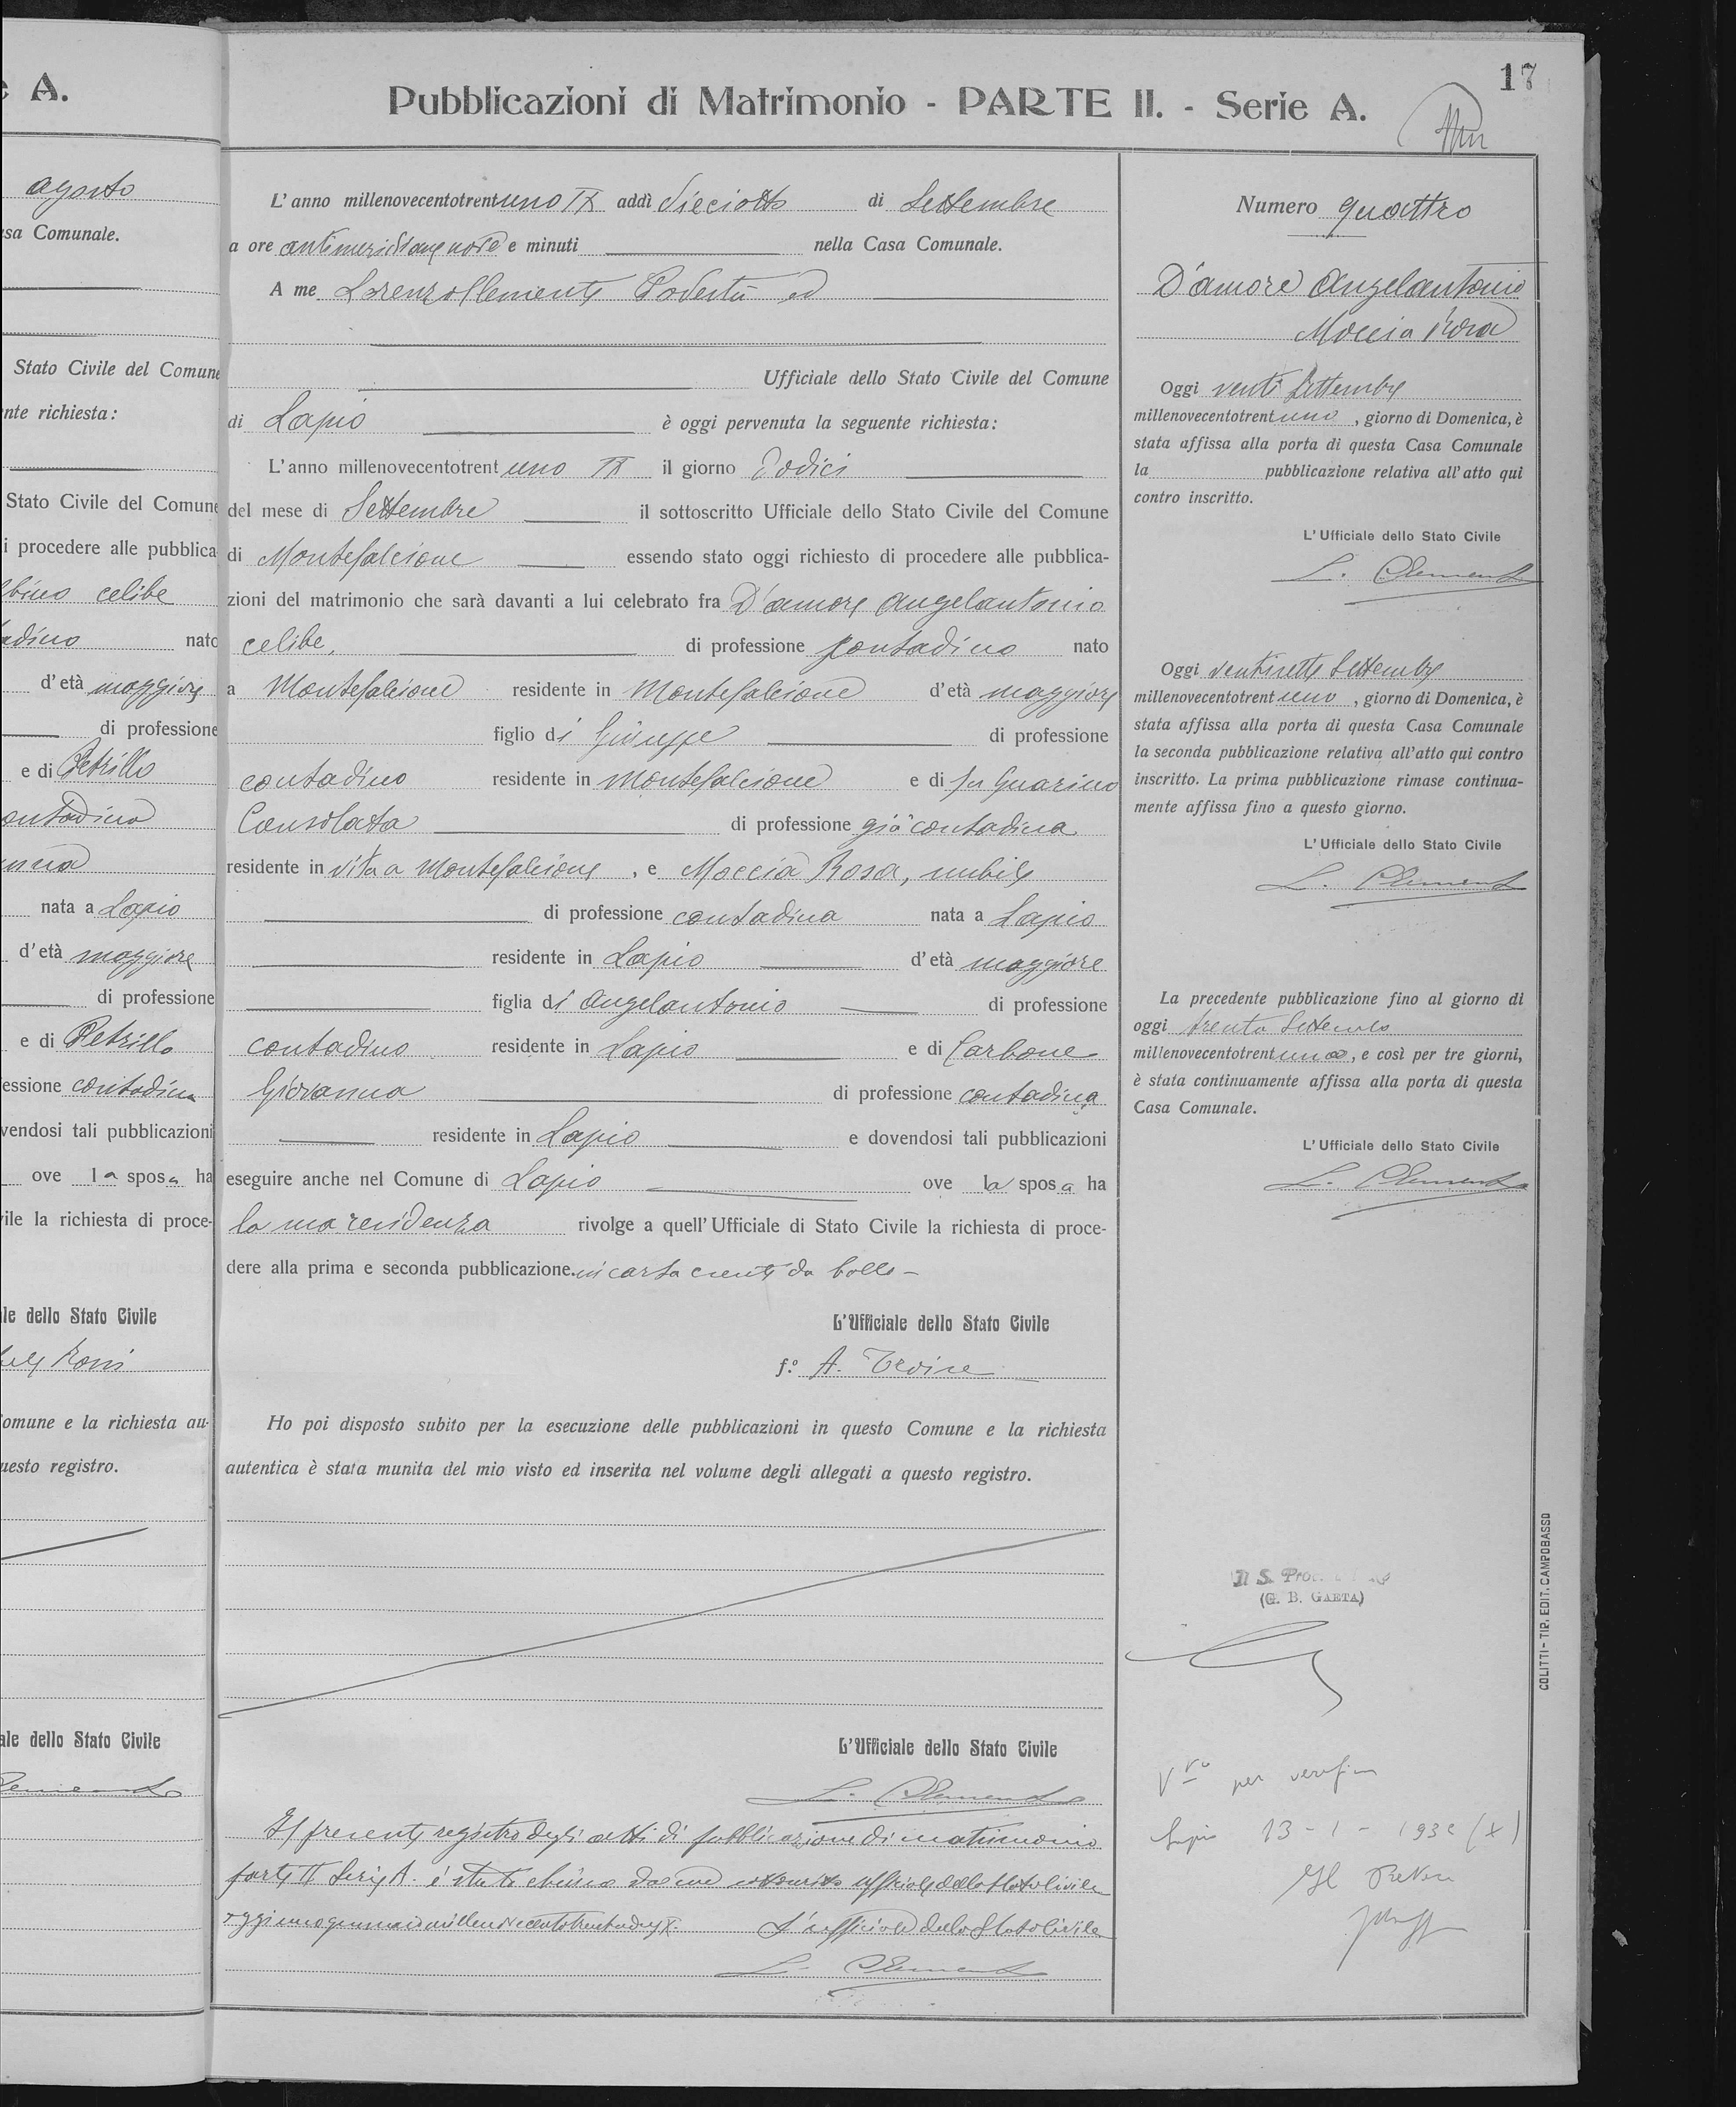 e A.
agosto
sa Comunale.
Stato Civile del Comune
nte richiesta:
Stato Civile del Comune
i procedere alle pubblica
bino celibe
adino nato
d'età maggiore
di professione
e di Petrillo
contadina
nata a Lapio
d'età maggiore
di professione
e di Petrillo
essione contadina
vendosi tali pubblicazioni
ove la sposa ha
ile la richiesta di proce-
le dello Stato Civile
omune e la richiesta au-
uesto registro.
ale dello Stato Civile
17
Pubblicazioni di Matrimonio - PARTE II. - Serie A.
L'anno millenovecentotrentuno IX addì dieciotto di Settembre
a ore antimeridiane nove e minuti nella Casa Comunale.
A me Lorenzo Clemente Podestà ed
Ufficiale dello Stato Civile del Comune
di Lapio è oggi pervenuta la seguente richiesta:
L'anno millenovecentotrent uno IX il giorno dodici
del mese di Settembre il sottoscritto Ufficiale dello Stato Civile del Comune
di Montefalcione essendo stato oggi richiesto di procedere alle pubblica-
zioni del matrimonio che sarà davanti a lui celebrato fra D'amore Angelantonio
celibe, di professione contadino nato
a Montefalcione residente in Montefalcione d'età maggiore
figlio di Giuseppe di professione
contadino residente in Montefalcione e di fu Guarino
Consolata di professione già contadina
residente in vita a Montefalcione, e Moccia Rosa, nubile
di professione contadina nata a Lapio
residente in Lapio d'età maggiore
figlia di Angelantonio di professione
contadino residente in Lapio e di Carbone
Giovanna di professione contadina
residente in Lapio e dovendosi tali pubblicazioni
eseguire anche nel Comune di Lapio ove la sposa ha
la sua residenza rivolge a quell'Ufficiale di Stato Civile la richiesta di proce-
dere alla prima e seconda pubblicazione. in carta esente da bollo -
L'Ufficiale dello Stato Civile
f.o A. Troise
Ho poi disposto subito per la esecuzione delle pubblicazioni in questo Comune e la richiesta
autentica è stata munita del mio visto ed inserita nel volume degli allegati a questo registro.
L'Ufficiale dello Stato Civile
L. Clemente
Il presente registro degli atti di pubblicazione di matrimonio
parte II Serie A. è stato chiuso da me sottoscritto ufficiale dello Stato Civile
oggi uno gennaio millenovecentotrentadue X. L'ufficiale dello Stato Civile
L. Clemente
Numero quattro
D'amore Angelantonio
Moccia Rosa
Oggi venti Settembre
millenovecentotrent uno, giorno di Domenica, è
stata affissa alla porta di questa Casa Comunale
la pubblicazione relativa all'atto qui
contro inscritto.
L'Ufficiale dello Stato Civile
L. Clemente
Oggi ventisette Settembre
millenovecentotrent uno, giorno di Domenica, è
stata affissa alla porta di questa Casa Comunale
la seconda pubblicazione relativa all'atto qui contro
inscritto. La prima pubblicazione rimase continua-
mente affissa fino a questo giorno.
L'Ufficiale dello Stato Civile
L. Clemente
La precedente pubblicazione fino al giorno di
oggi trenta Settembre
millenovecentotrent uno, e così per tre giorni,
è stata continuamente affissa alla porta di questa
Casa Comunale.
L'Ufficiale dello Stato Civile
L. Clemente
Il S.
(G. B. GAETA)
V.to per verifica
Lapio 13 - 1 - 1932 (X)
Il Pretore
COLITTI - TIP. EDIT. CAMPOBASSO